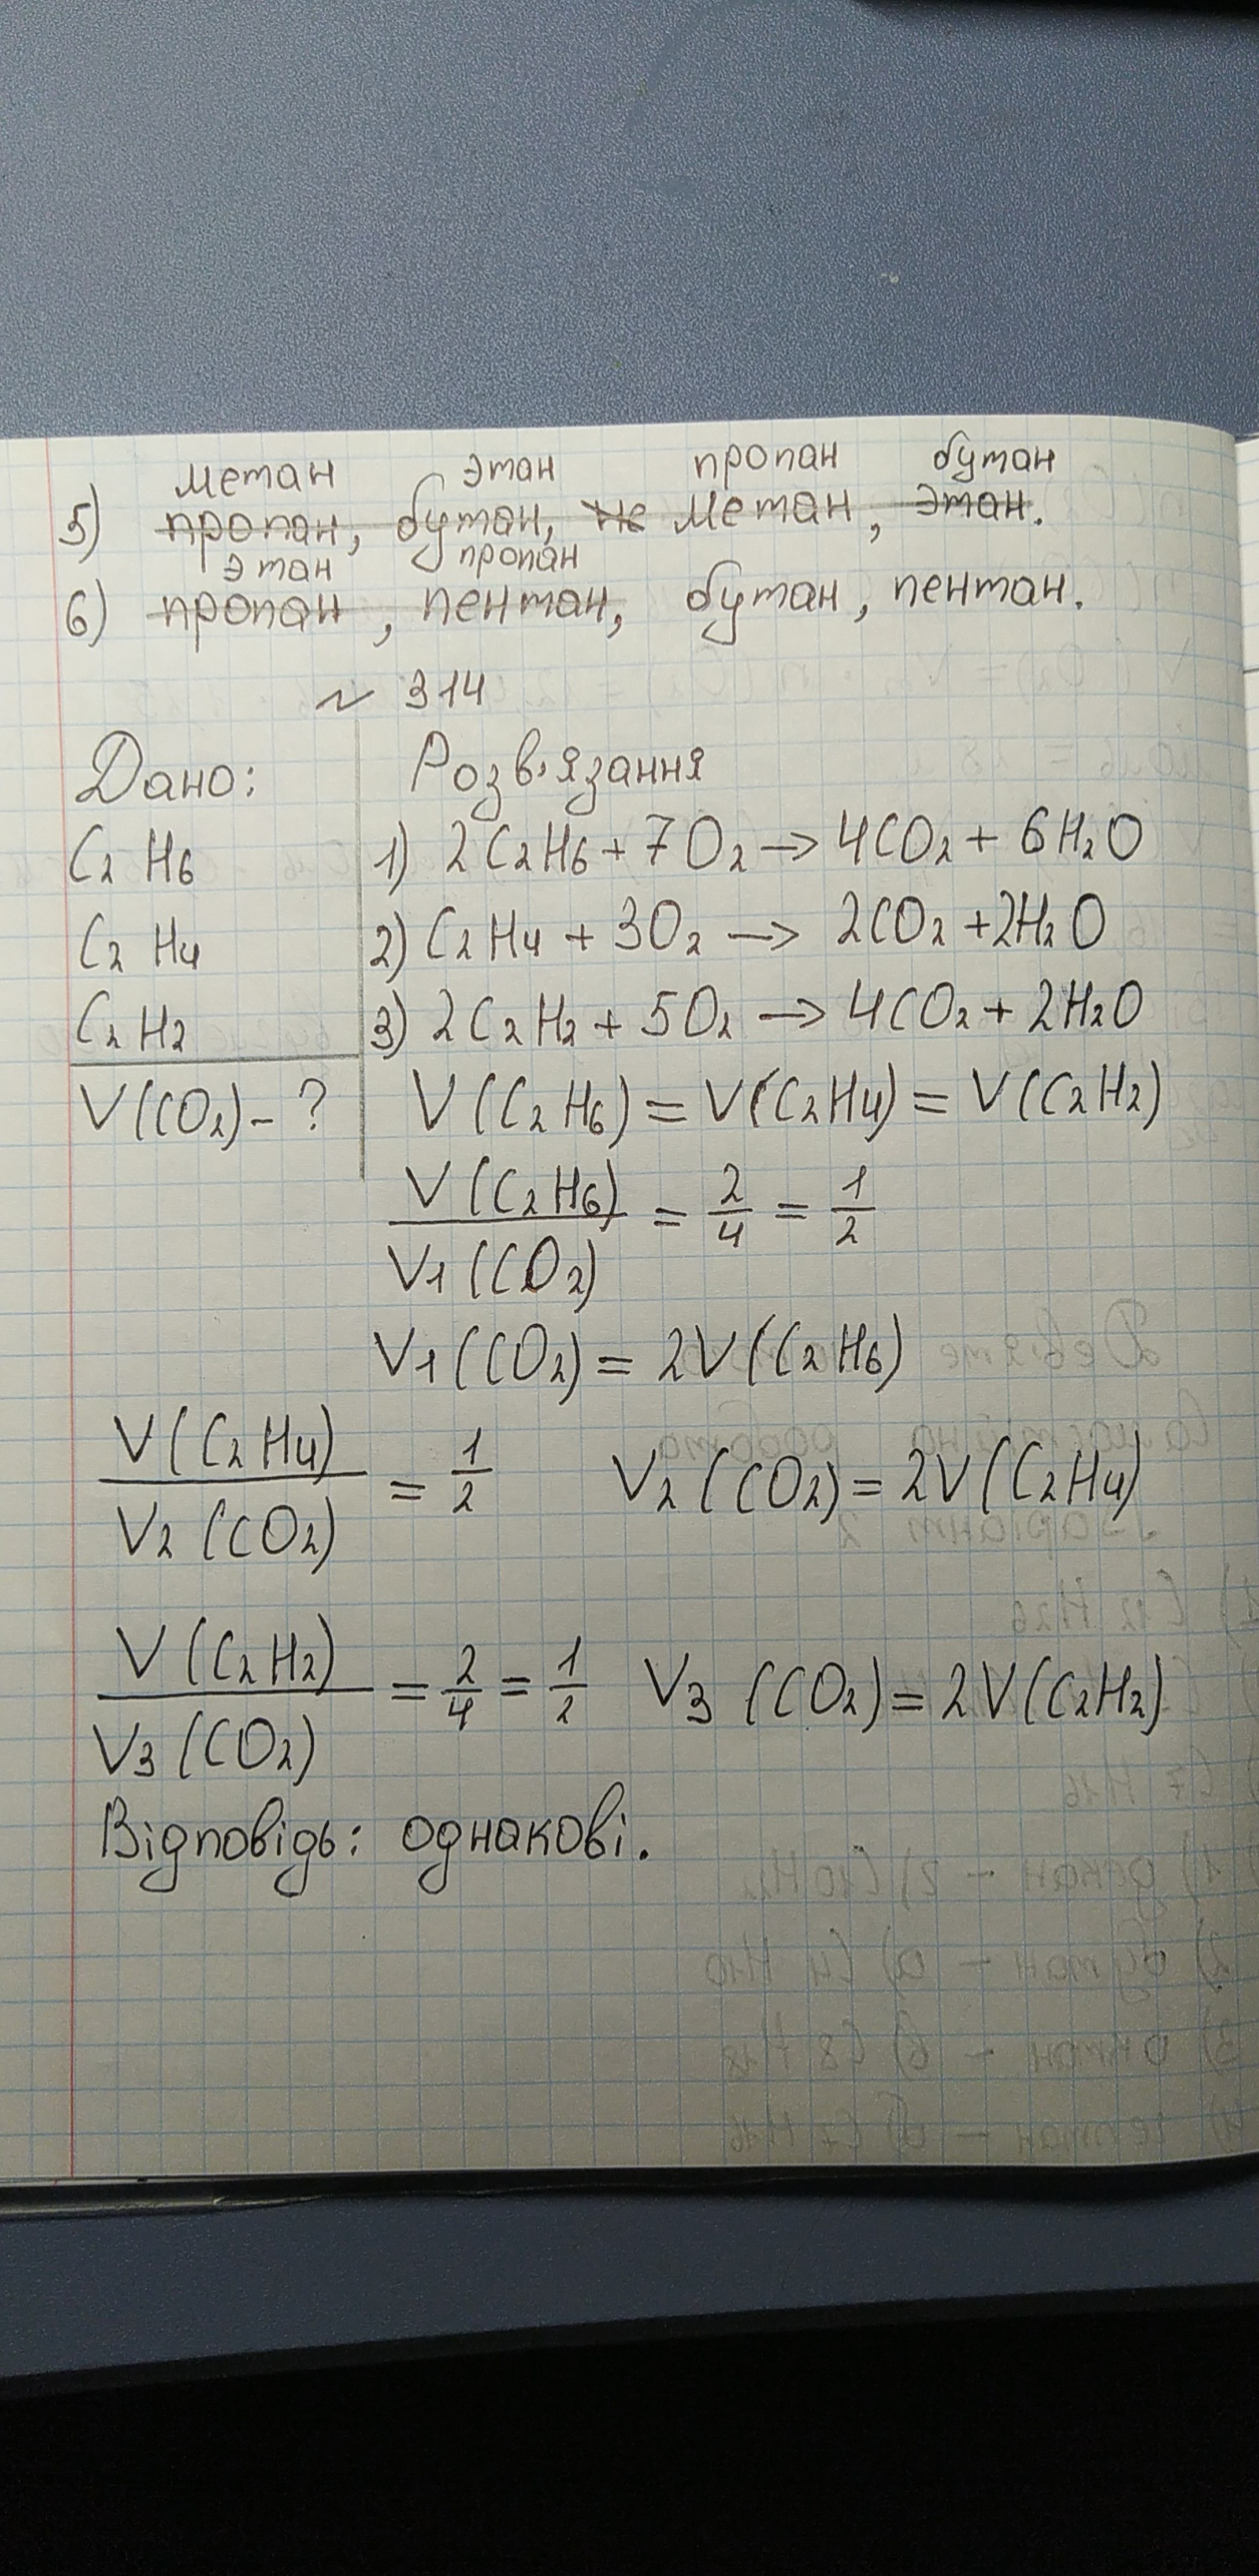 метан этан пропан бутан
5) пропан, бутан, не метан, этан.
этан пропан
6) пропан, пентан, бутан, пентан.
~ 314
Дано: Розв'язання
C₂H₆ 1) 2C₂H₆ + 7O₂ → 4CO₂ + 6H₂O
C₂H₄ 2) C₂H₄ + 3O₂ → 2CO₂ + 2H₂O
C₂H₂ 3) 2C₂H₂ + 5O₂ → 4CO₂ + 2H₂O
V(CO₂) - ? V(C₂H₆) = V(C₂H₄) = V(C₂H₂)
V(C₂H₆) / V₁(CO₂) = 2/4 = 1/2
V₁(CO₂) = 2V(C₂H₆)
V(C₂H₄) / V₂(CO₂) = 1/2 V₂(CO₂) = 2V(C₂H₄)
V(C₂H₂) / V₃(CO₂) = 2/4 = 1/2 V₃(CO₂) = 2V(C₂H₂)
Відповідь: однакові.